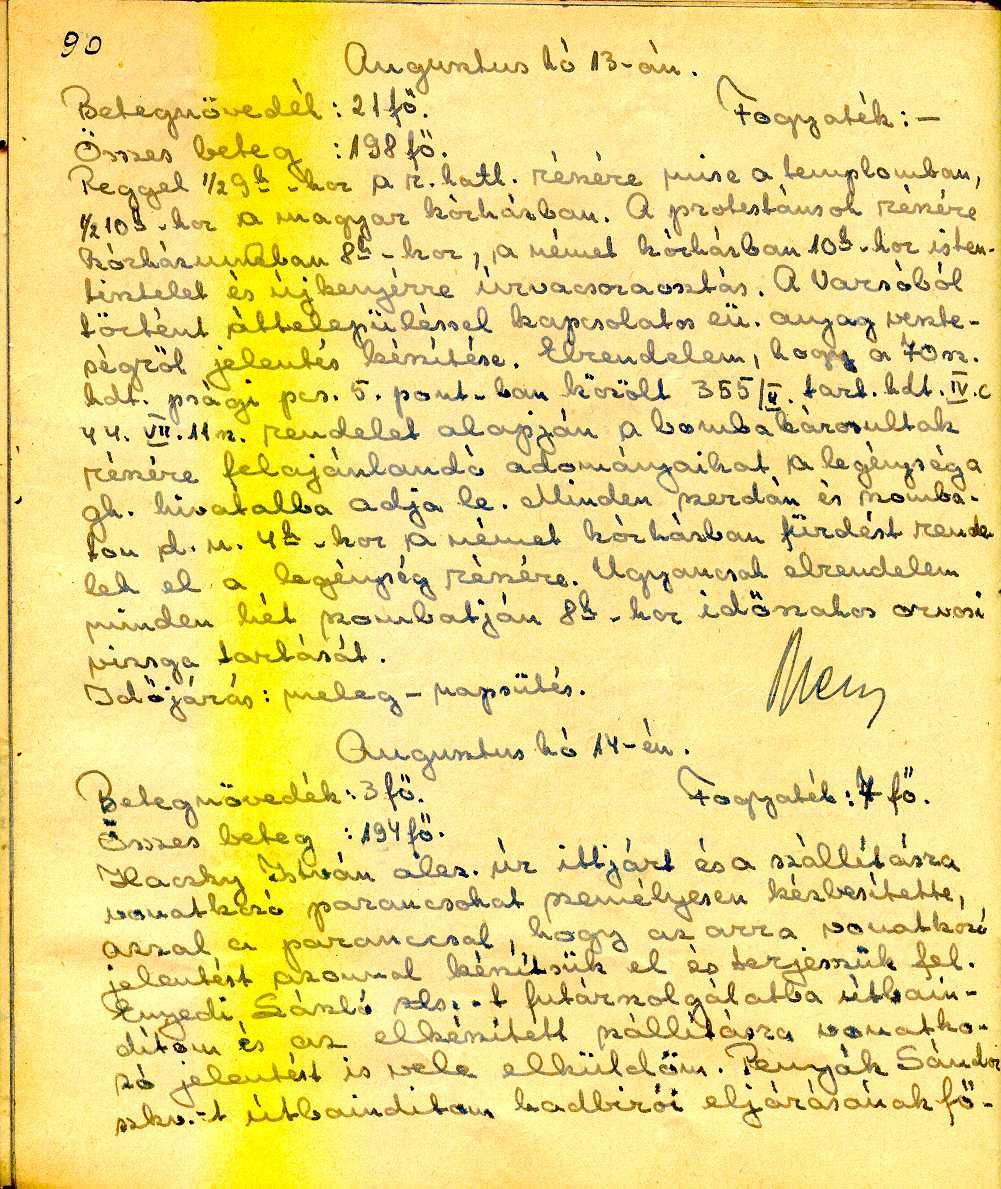 90
Augusztus hó 13-án.
Betegnövedék : 21 fő. Fogyaték : —
Összes beteg : 198 fő.
Reggel 1/2 9h-kor a r. kath. részére mise a templomban,
1/2 10h-kor a magyar kórházban. A protestánsok részére
kórházunkban 8h-kor, a német kórházban 10h-kor isten-
tisztelet és újkenyérre úrvacsoraosztás. A Varsóból
történt áttelepüléssel kapcsolatos eü. anyag veszte-
ségről jelentés készítése. Elrendelem, hogy a 70 sz.
hdt. psági pcs. 5. pont-ban közölt 355/II. tart. hdt. IV. c
44. VII. 11 sz. rendelet alapján a bombakárosultak
részére felajánlandó adományaikat a legénysége
gh. hivatalba adja le. Minden szerdán és szomba-
ton d. u. 4h-kor a német kórházban fürdést rende
lek el a legénység részére. Ugyancsak elrendelem
minden hét szombatján 8h-kor időszakos orvosi
vizsga tartását.
Időjárás : meleg - napsütés.
Augusztus hó 14-én.
Betegnövedék : 3 fő. Fogyaték : 7 fő.
Összes beteg : 194 fő.
István alez. úr ittjárt és a szállításra
vonatkozó parancsokat személyesen kézbesítette,
azzal a paranccsal, hogy az arra vonatkozó
jelentést azonnal készítsük el és terjesszük fel.
Enyedi László zls.-t futárszolgálatba útbain-
dítom és az elkészített szállításra vonatko-
zó jelentést is vele elküldöm. Penyák Sándor
szkv.-t útbaindítom hadbírói eljárásának fő-